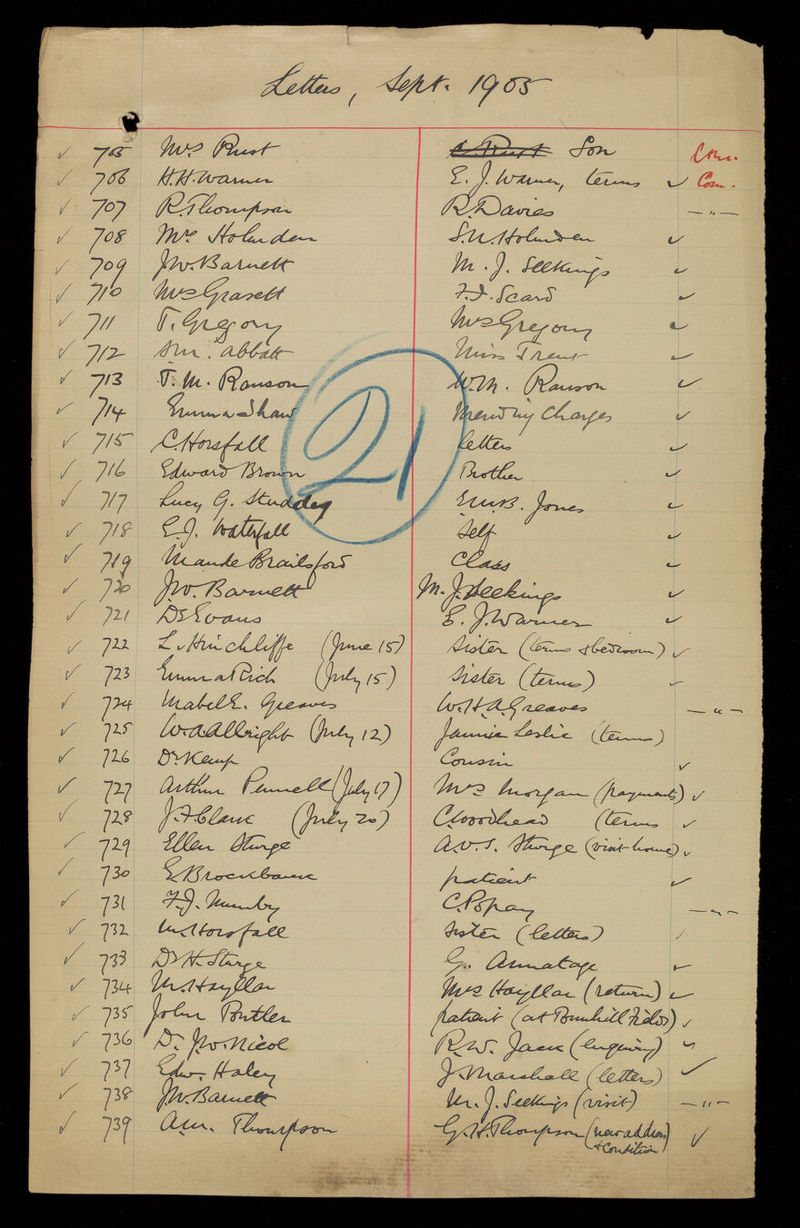 Letters, Sept. 1905
✓ 705 Mrs Rust Son Com.
✓ 706 H.H. Warner E. J. Warner, terms ✓ Com.
✓ 707 R. Thompson R. Davies — " —
✓ 708 Mrs Holmden S.N. Holmden ✓
✓ 709 J.W. Barnett M. J. Seekings ✓
✓ 710 Mrs Grasett F.J. Scard ✓
✓ 711 T. Gregory Mrs Gregory ✓
✓ 712 Abbatt Miss Trent ✓
✓ 713 T. M. Ranson W.M. Ranson ✓
✓ 714 Emma Shaw Mending Charges ✓
✓ 715 C. Horsfall letters ✓
✓ 716 Edward Brown Brother ✓
✓ 717 Lucy G. Studdy E.M.B. Jones ✓
✓ 718 E.J. Waterfall Self ✓
✓ 719 Maude Brailsford Class ✓
✓ 720 J.W. Barnett M. J. Seekings ✓
✓ 721 Dr Evans E. J. Warner ✓
✓ 722 L. Hinchliffe (June 15) Sister (terms & bedroom) ✓
✓ 723 Emma Rich (July 15) Sister (terms) ✓
✓ 724 Mabel E. Greaves W.H.A. Greaves — " —
✓ 725 W.A. Albright (July 12) Jannie Leslie (terms)
✓ 726 Dr Kemp Cousin ✓
✓ 727 Arthur Pennell (July 17) Mrs Morgan (payments) ✓
✓ 728 J.F. Clark (July 20) C. Woodhead (terms ✓
✓ 729 Ellen Sturge A.V.S. Sturge (visit home) ✓
✓ 730 E. Brockbank patient ✓
✓ 731 F.J. Mumby C. Popay — " —
✓ 732 M. Horsfall Sister (letters)
✓ 733 Dr H. Sturge G. Armatage ✓
✓ 734 M. Hayllar Mrs Hayllar (return) ✓
✓ 735 John Butler patient (at Bunhill Fields) ✓
✓ 736 D. J.W. Nicol R.W. Jack (enquiry) ✓
✓ 737 Edw. Haley J. Marshall (letters) ✓
✓ 738 J.W. Barnett M. J. Seekings (visit) — " —
✓ 739 A.M. Thompson G.H. Thompson (new address & Condition) ✓
21